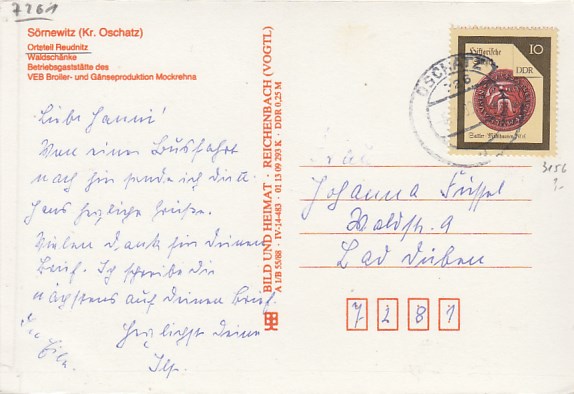 7261
Sörnewitz (Kr. Oschatz)
Ortsteil Reudnitz
Waldschänke
Betriebsgaststätte des
VEB Broiler- und Gänseproduktion Mockrehna
Liebe Hanni!
Von einer Busfahrt
nach hier sende ich dir
herzliche Grüße.
Vielen Dank für Deinen
Brief. Ich schreibe Dir
nächstens auf Deinen Brief.
Herzlichst Deine
Ilse
BILD UND HEIMAT · REICHENBACH (VOGTL)
A 1/B 55/88 · IV-14-483 · 01 13 09 293 K · DDR 0,25 M
Historische
10
DDR
OSCHATZ
726
3156
Johanna
Waldstr. 9
Bad Düben
7281